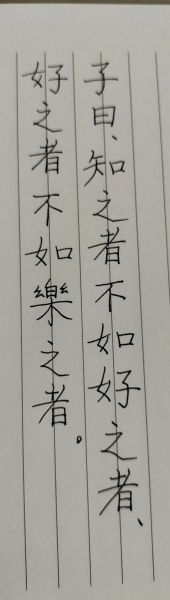 子曰、知之者不如好之者、
好之者不如樂之者。